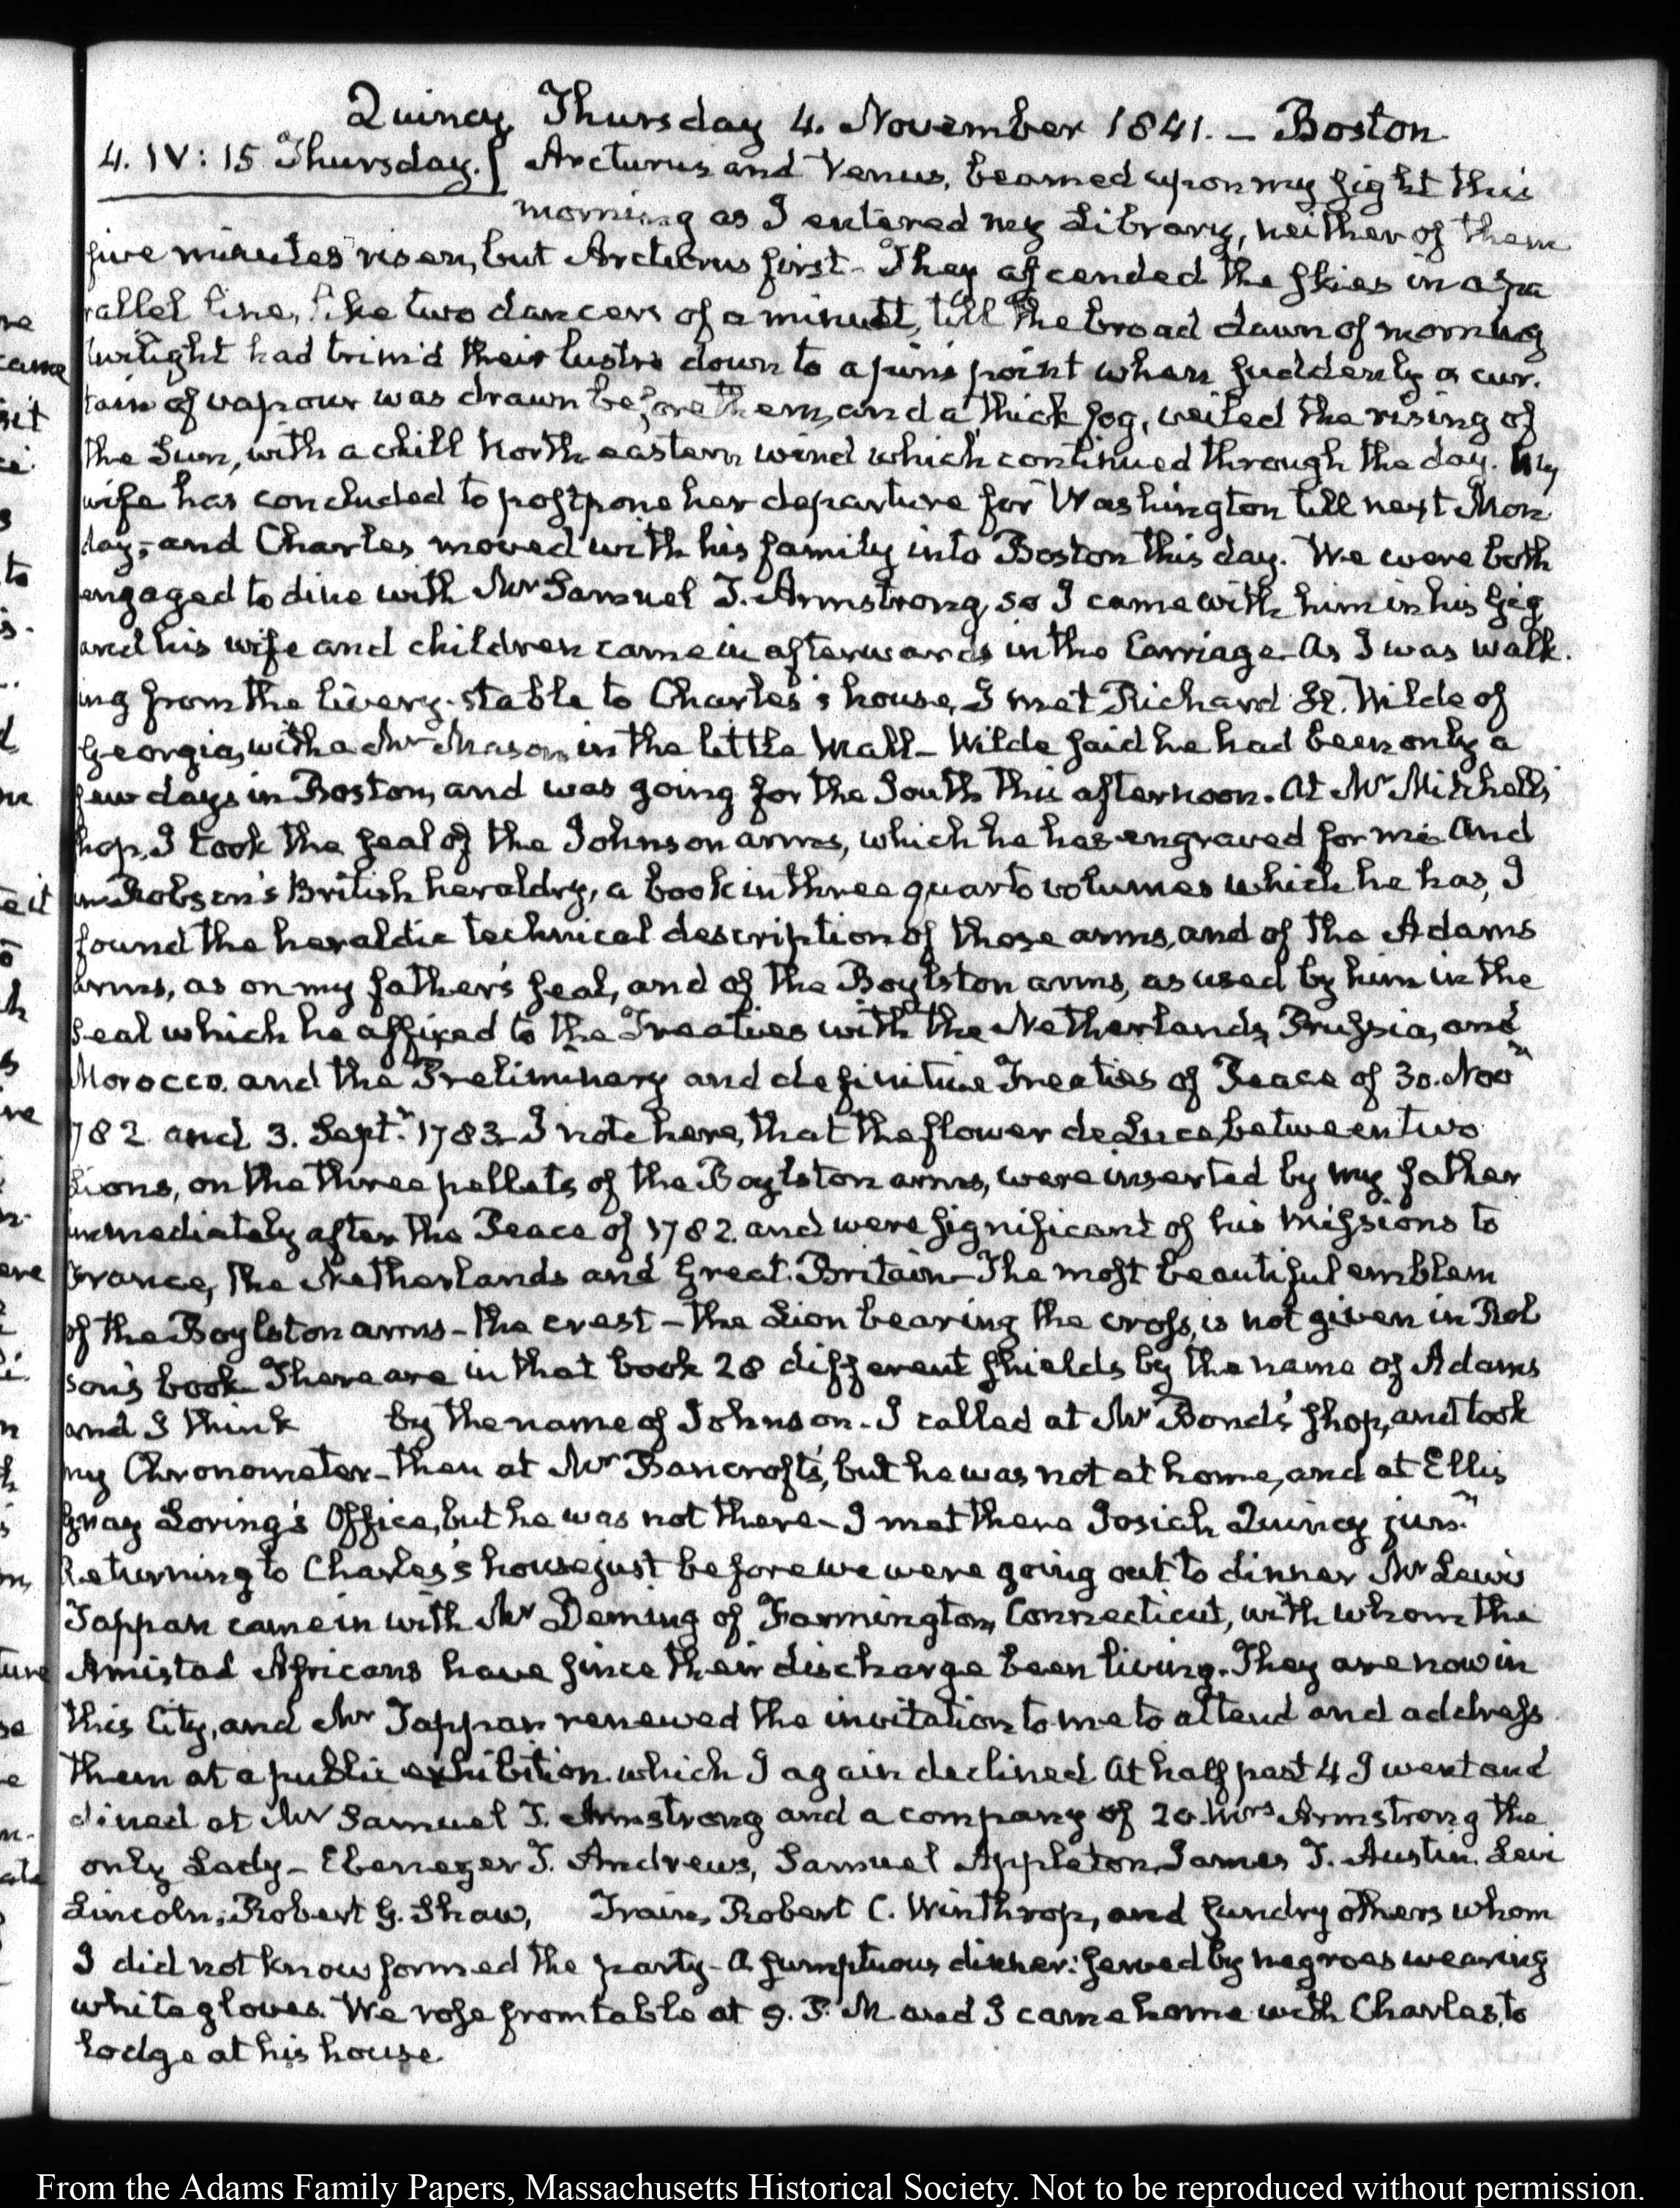 Quincy Thursday 4. November 1841. – Boston
4. IV: 15 Thursday. Arcturus and Venus, beamed upon my sight this
morning as I entered my Library, neither of them
five minutes risen, but Arcturus first – They ascended the skies in a pa
rallel line, like two dancers of a minuet, till the broad dawn of morning
twilight had trim'd their lustre down to a pin's point when suddenly a cur-
tain of vapour was drawn before them, and a thick fog, veiled the rising of
the Sun, with a chill North eastern wind which continued through the day. My
wife has concluded to postpone her departure for Washington till next Mon
day, and Charles moved with his family into Boston this day. We were both
engaged to dine with Mr Samuel T. Armstrong, so I came with him in his Gig
and his wife and children came in afterwards in the Carriage. As I was walk-
ing from the livery-stable to Charles's house, I met Richard H. Wilde of
Georgia, with a Mr Mason in the little Mall – Wilde said he had been only a
few days in Boston, and was going for the South this afternoon. At Mr Mitchell's
shop, I took the seal of the Johnson arms, which he has engraved for me. And
in Robson's British heraldry, a book in three quarto volumes which he has, I
found the heraldic technical description of those arms, and of the Adams
arms, as on my father's seal, and of the Boylston arms, as used by him in the
seal which he affixed to the Treaties with the Netherlands, Prussia, and
Morocco. and the Preliminary and definitive Treaties of Peace of 30. Novr
1782 and 3. Septr 1783 – I note here, that the flower de Luce, between two
Lions, on the three pellets of the Boylston arms, were inserted by my father
immediately after the Peace of 1782. and were significant of his Missions to
France, the Netherlands and Great Britain – The most beautiful emblem
of the Boylston arms – the crest – the Lion bearing the cross, is not given in Rob
son's book There are in that book 28 different shields by the name of Adams
and I think by the name of Johnson – I called at Mr Bond's shop, and took
my Chronometer – then at Mr Bancroft's, but he was not at home, and at Ellis
Gray Loring's Office, but he was not there – I met there Josiah Quincy junr
Returning to Charles's house just before we were going out to dinner Mr Lewis
Tappan came in with Mr Deming of Farmington, Connecticut, with whom the
Amistad Africans have since their discharge been living. They are now in
this City, and Mr Tappan renewed the invitation to me to attend and address
them at a public exhibition. which I again declined. At half past 4 I went and
dined at Mr Samuel T. Armstrong and a company of 20. Mrs Armstrong the
only Lady – Ebenezer T. Andrews, Samuel Appleton, James T. Austin. Levi
Lincoln, Robert G. Shaw, Train, Robert C. Winthrop, and sundry others whom
I did not know formed the party – A sumptuous dinner: served by negroes wearing
white gloves. We rose from table at 9. P.M. and I came home with Charles, to
lodge at his house.
From the Adams Family Papers, Massachusetts Historical Society. Not to be reproduced without permission.